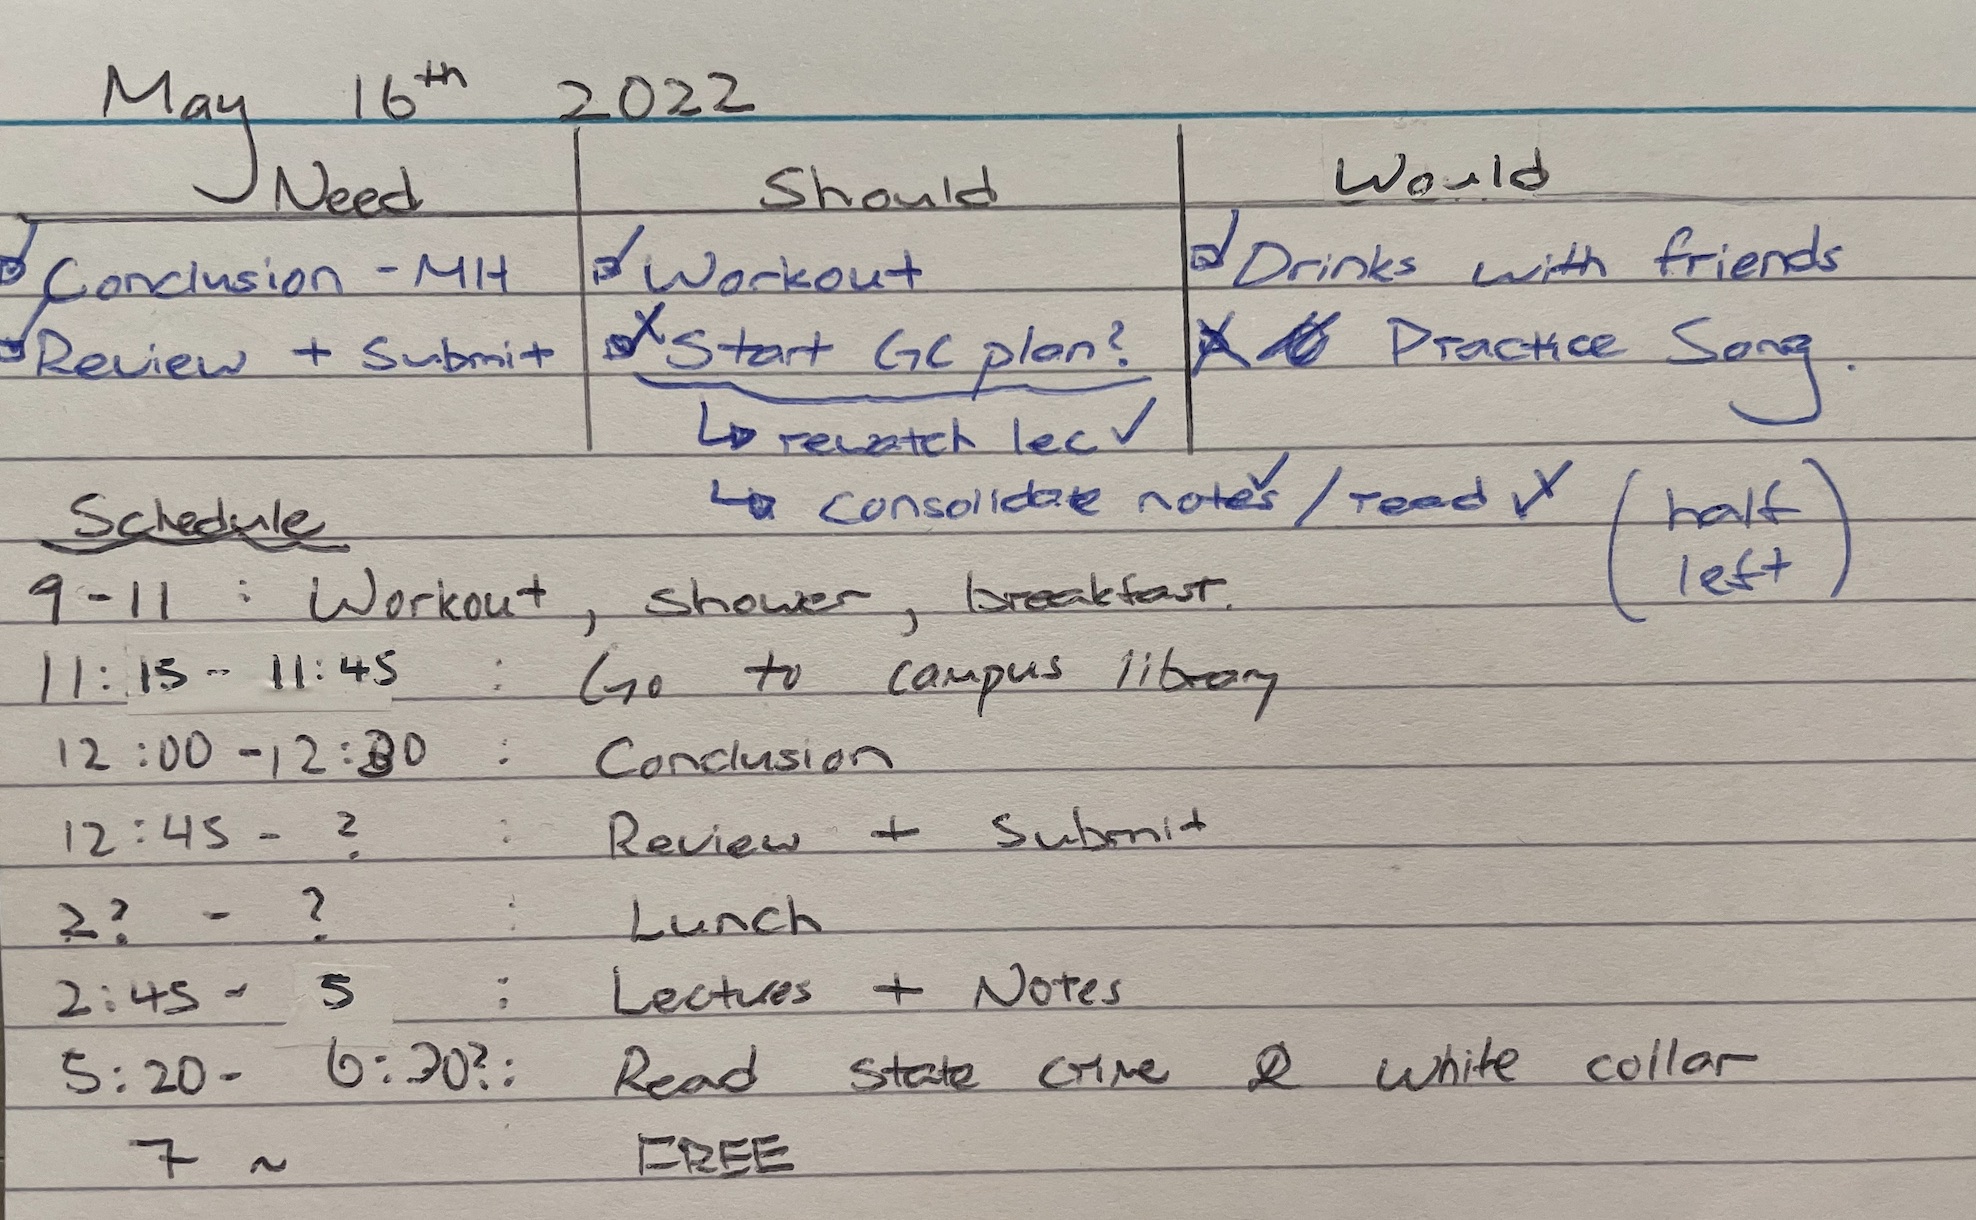 May 16th 2022
Need Should Would
Conclusion - MH
Review + Submit
Workout
Start GC plan?
↳ rewatch lec ✓
↳ consolidate notes ✓ / read ✗ (half left)
Drinks with friends
Practice Song.
Schedule
9-11 : Workout, shower, breakfast.
11:15 - 11:45 : Go to campus library
12:00 - 12:30 : Conclusion
12:45 - ? : Review + Submit
2? - ? : Lunch
2:45 - 5 : Lectures + Notes
5:20 - 6:30? : Read state crime & white collar
7 ~ FREE